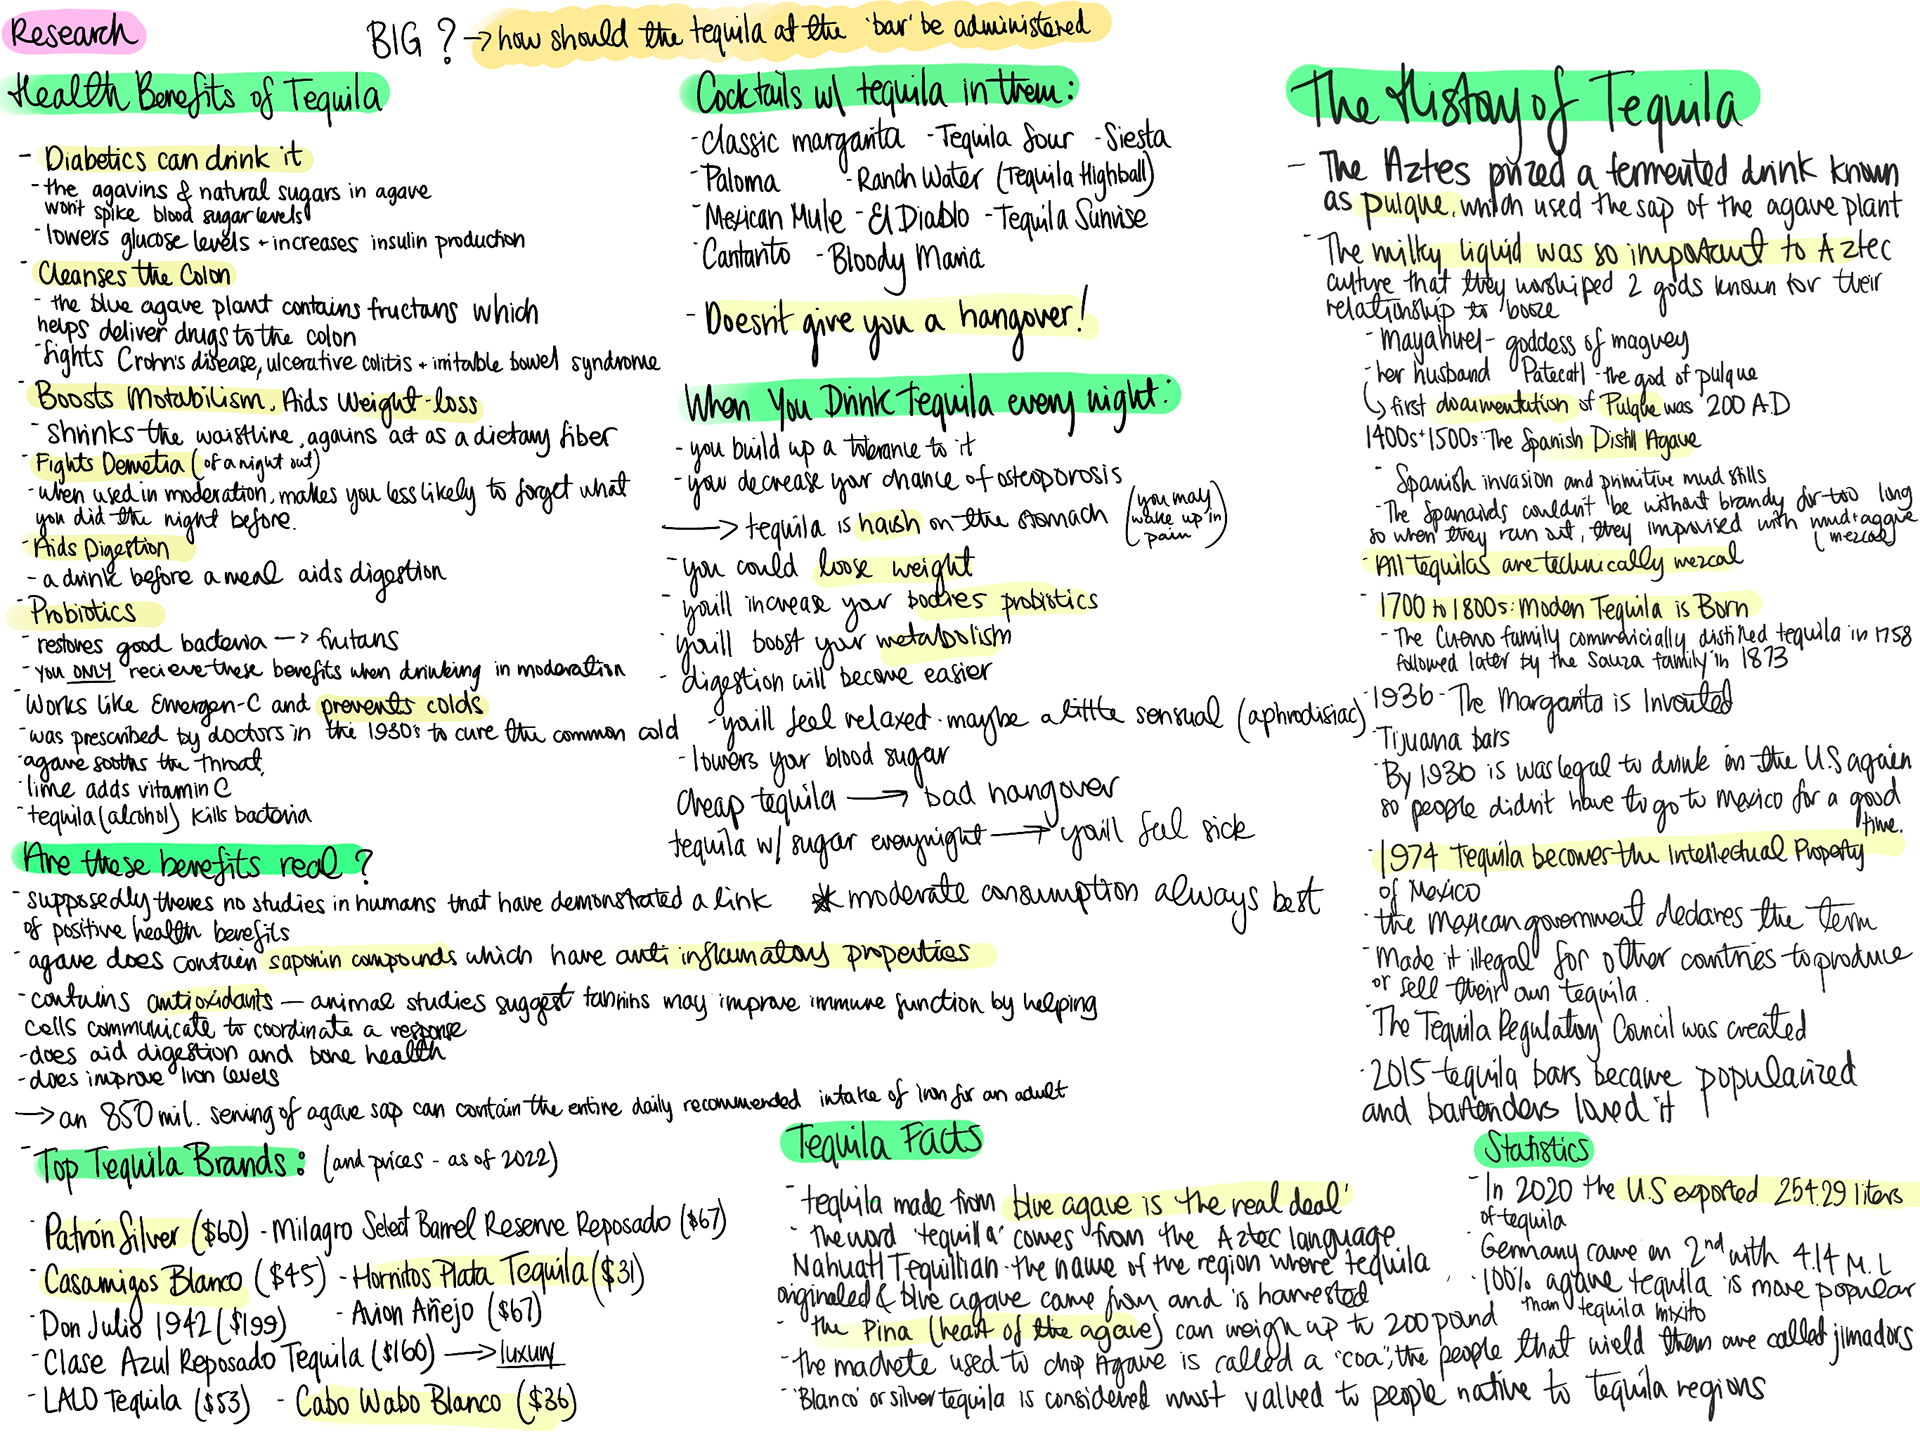 Research
BIG ? → how should the tequila at the 'bar' be administered
Health Benefits of Tequila
- Diabetics can drink it
- the agavins & natural sugars in agave
wont spike blood sugar levels
- lowers glucose levels + increases insulin production
- Cleanses the Colon
- the blue agave plant contains fructans which
helps deliver drugs to the colon
- fights Crohn's disease, ulcerative colitis + irritable bowel syndrome
- Boosts Motabilism, Aids Weight-loss
- shrinks the waistline, agains act as a dietary fiber
- Fights Demetia (of a night out)
- when used in moderation, makes you less likely to forget what
you did the night before.
- Aids Digestion
- a drink before a meal aids digestion
- Probiotics
- restores good bacteria → frutans
- you ONLY recieve these benefits when drinking in moderation
- Works like Emergen-C and prevents colds
- was prescribed by doctors in the 1930's to cure the common cold
- agave sooths the throat,
- lime adds vitamin C
- tequila (alcohol) kills bacteria
Are these benefits real?
- supposedly theres no studies in humans that have demonstrated a link
of positive health benefits
- agave does contain saponin compounds which have anti inflamatory properties
- contains antioxidants — animal studies suggest tannins may improve immune function by helping
cells communicate to coordinate a response
- does aid digestion and bone health
- does improve Iron levels
→ an 850 mil. serving of agave sap can contain the entire daily recommended intake of iron for an adult
- Top Tequila Brands: (and prices - as of 2022)
- Patrón Silver ($60) - Milagro Select Barrel Reserve Reposado ($67)
- Casamigos Blanco ($45) - Hornitos Plata Tequila ($31)
- Don Julio 1942 ($199) - Avion Añejo ($67)
- Clase Azul Reposado Tequila ($160) → luxury
- LALO Tequila ($53) - Cabo Wabo Blanco ($36)
Cocktails w/ tequila in them:
- Classic margarita - Tequila Sour - Siesta
- Paloma - Ranch Water (Tequila Highball)
- Mexican Mule - El Diablo - Tequila Sunrise
- Cantarito - Bloody Maria
- Doesn't give you a hangover!
When You Drink tequila every night:
- you build up a tolerance to it
- you decrease your chance of osteoporosis
→ tequila is harsh on the stomach (you may
wake up in
pain)
- you could loose weight
- you'll increase your bodies probiotics
- you'll boost your metabolism
- digestion will become easier
- you'll feel relaxed - maybe a little sensual (aphrodisiac)
- lowers your blood sugar
cheap tequila → bad hangover
tequila w/ sugar everynight → you'll feel sick
* moderate consumption always best
The History of Tequila
- The Aztes prized a fermented drink known
as pulque, which used the sap of the agave plant
- The milky liquid was so important to Aztec
culture that they worshiped 2 gods known for their
relationship to booze
- Mayahuel - goddess of maguey
- her husband Patecatl - the god of pulque
↳ first documentation of Pulque was 200 A.D
1400s + 1500s: The Spanish Distill Agave
- Spanish invasion and primitive mud stills
- The Spanards couldn't be without brandy for too long
so when they ran out, they improvised with mud + agave
(mezcal)
- All tequilas are technically mezcal
- 1700 to 1800s: Moden Tequila is Born
- The Cuervo family commericially distilled tequila in 1758
followed later by the Sauza family in 1873
- 1936 - The Margarita is Invented
- Tijuana bars
- By 1936 is was legal to drink in the U.S again
so people didn't have to go to Mexico for a good
time.
- 1974 Tequila becomes the Intellectual Property
of Mexico
- the Mexican government declares the term
- Made it illegal for other contries to produce
or sell their own tequila.
- The Tequila Regulatory Council was created
- 2015 - tequila bars became popularized
and bartenders loved it
Tequila Facts
- tequila made from blue agave is 'the real deal'
- the word 'tequilla' comes from the Aztec language
Nahuatl Tequillian - the name of the region where tequila
originated & blue agave came from and is harvested
- the Pina (heart of the agave) can weigh up to 200 pound
- the machete used to chop Agave is called a "coa", the people that wield them are called jimadors
- 'Blanco' or silver tequila is considered most valued to people native to tequila regions
Statistics
- In 2020 the U.S exported 254.29 liters
of tequila
- Germany came in 2nd with 4.14 M.L
- 100% agave tequila is more popular
than tequila mixito